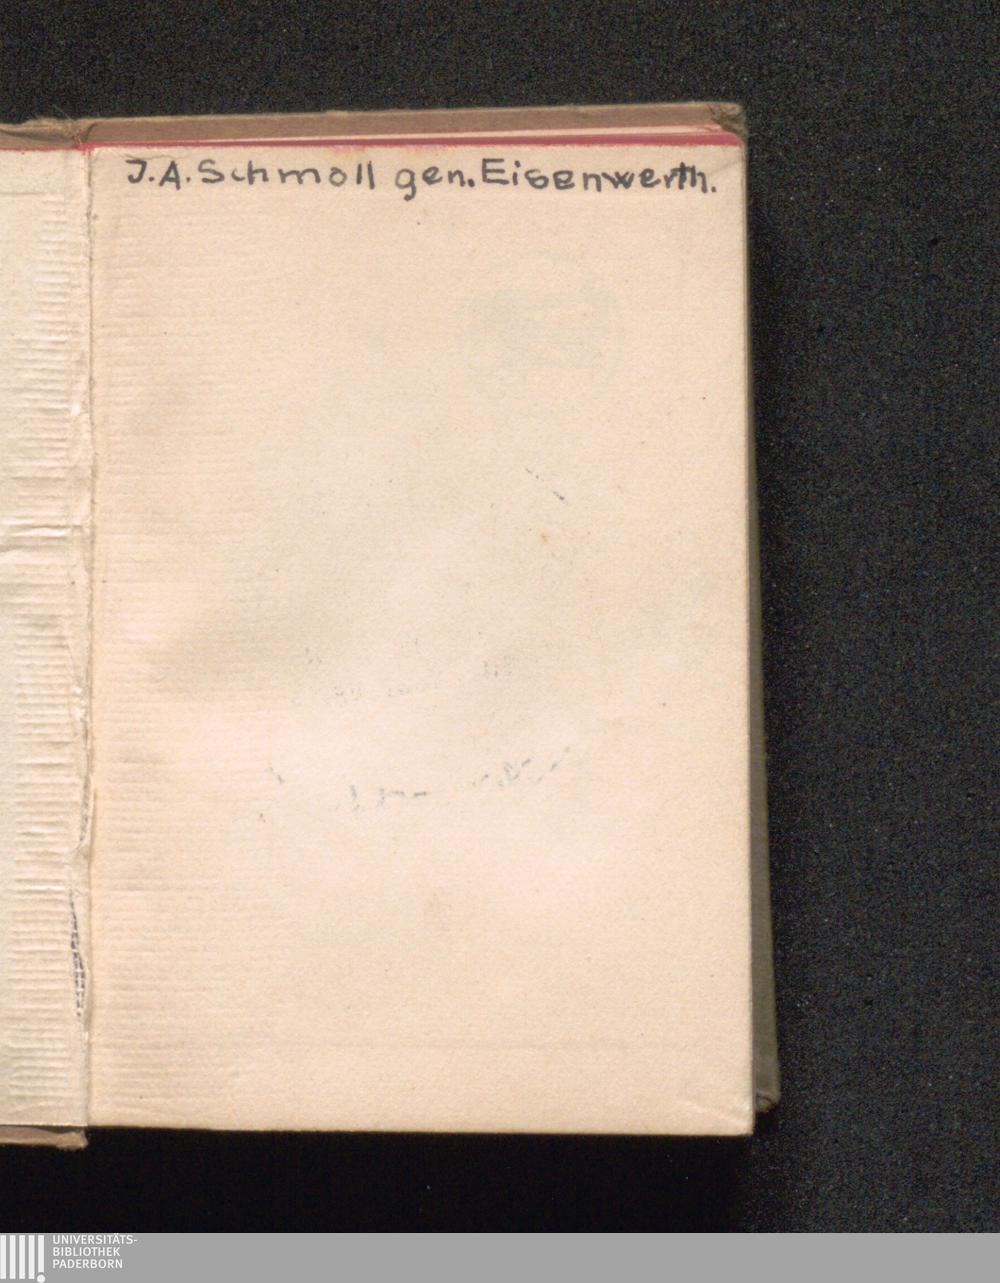 J.A. Schmoll gen. Eisenwerth.
UNIVERSITÄTS-
BIBLIOTHEK
PADERBORN